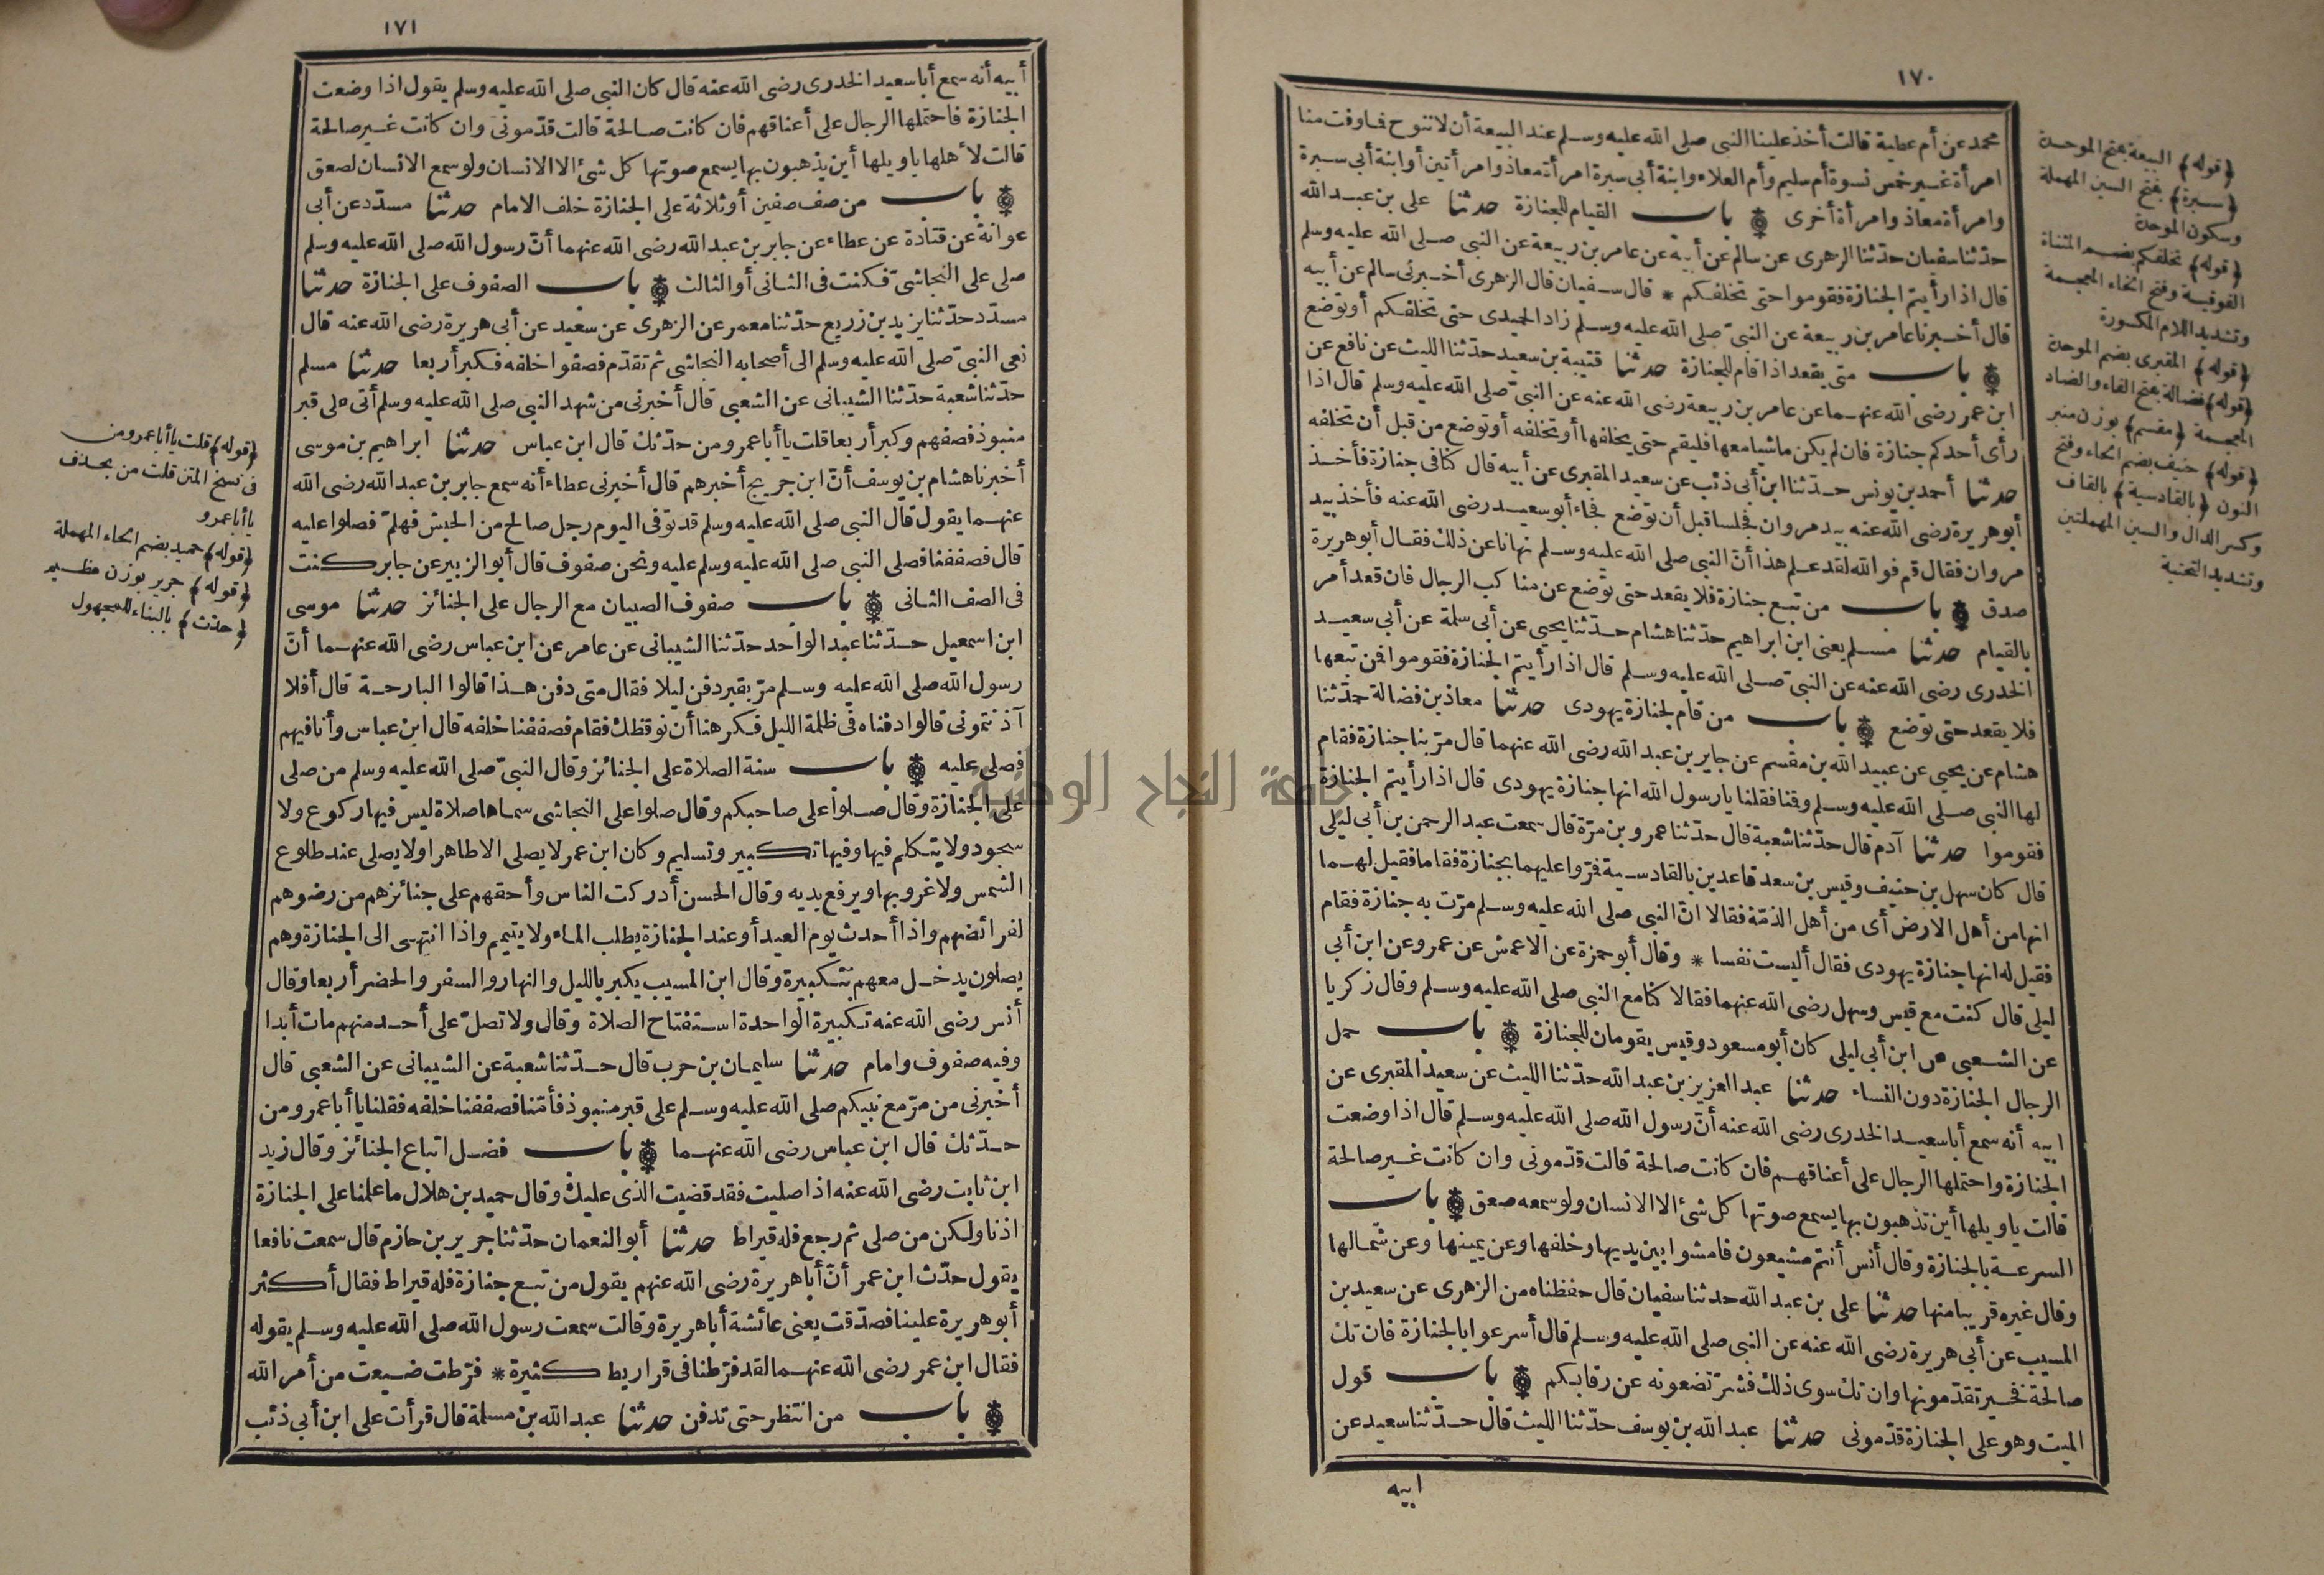 ١٧٠
محمد عن أم عطية قالت أخذ علينا النبي صلى الله عليه وسلم عند البيعة أن لا ننوح فما وفت منا
امرأة غير خمس نسوة أم سليم وأم العلاء وابنة أبي سبرة امرأة معاذ وامرأتين أو ابنة أبي سبرة
وامرأة معاذ وامرأة أخرى باب القيام للجنازة حدثنا علي بن عبد الله
حدثنا سفيان حدثنا الزهرى عن سالم عن أبيه عن عامر بن ربيعة عن النبي صلى الله عليه وسلم
قال اذا رأيتم الجنازة فقوموا حتى تخلفكم * قال سفيان قال الزهرى أخبرنى سالم عن أبيه
قال أخبرنا عامر بن ربيعة عن النبيّ صلى الله عليه وسلم زاد الحميدى حتى تخلفكم أو توضع
باب متى يقعد اذا قام للجنازة حدثنا قتيبة بن سعيد حدّثنا الليث عن نافع عن
ابن عمر رضى الله عنهما عن عامر بن ربيعة رضى الله عنه عن النبيّ صلى الله عليه وسلم قال اذا
رأى أحدكم جنازة فان لم يكن ماشيا معها فليقم حتى يخلفها أو تخلفه أو توضع من قبل أن تخلفه
حدثنا أحمد بن يونس حدّثنا ابن أبى ذئب عن سعيد المقبرى عن أبيه قال كنا فى جنازة فأخذ
أبو هريرة رضى الله عنه بيد مروان فجلسا قبل أن توضع فجاء أبو سعيد رضى الله عنه فأخذ بيد
مروان فقال قم فوالله لقد علم هذا أنّ النبي صلى الله عليه وسلم نهانا عن ذلك فقال أبو هريرة
صدق باب من تبع جنازة فلا يقعد حتى توضع عن مناكب الرجال فان قعد أمر
بالقيام حدثنا مسلم يعنى ابن ابراهيم حدّثنا هشام حدّثنا يحيى عن أبى سلمة عن أبى سعيد
الخدرى رضى الله عنه عن النبيّ صلى الله عليه وسلم قال اذا رأيتم الجنازة فقوموا فمن تبعها
فلا يقعد حتى توضع باب من قام لجنازة يهودى حدثنا معاذ بن فضالة حدّثنا
هشام عن يحيى عن عبيد الله بن مقسم عن جابر بن عبد الله رضى الله عنهما قال مرّ بنا جنازة فقام
لها النبى صلى الله عليه وسلم وقمنا فقلنا يا رسول الله انها جنازة يهودى قال اذا رأيتم الجنازة
فقوموا حدثنا آدم قال حدّثنا شعبة قال حدّثنا عمرو بن مرّة قال سمعت عبد الرحمن بن أبى ليلى
قال كان سهل بن حنيف وقيس بن سعد قاعدين بالقادسية فمرّوا عليهما بجنازة فقاما فقيل لهما
انها من أهل الارض أى من أهل الذمّة فقالا انّ النبى صلى الله عليه وسلم مرّت به جنازة فقام
فقيل له انها جنازة يهودى فقال أليست نفسا * وقال أبو حمزة عن الاعمش عن عمرو عن ابن أبى
ليلى قال كنت مع قيس وسهل رضى الله عنهما فقالا كنا مع النبى صلى الله عليه وسلم وقال زكريا
عن الشعبى عن ابن أبى ليلى كان أبو مسعود وقيس يقومان للجنازة باب حمل
الرجال الجنازة دون النساء حدثنا عبد العزيز بن عبد الله حدّثنا الليث عن سعيد المقبرى عن
ابيه أنه سمع أبا سعيد الخدرى رضى الله عنه أنّ رسول الله صلى الله عليه وسلم قال اذا وضعت
الجنازة واحتملها الرجال على أعناقهم فان كانت صالحة قالت قدّمونى وان كانت غير صالحة
قالت يا ويلها أين تذهبون بها يسمع صوتها كل شئ الا الانسان ولو سمعه صعق باب
السرعة بالجنازة وقال أنس أنتم مشيعون فامشوا بين يديها وخلفها وعن يمينها وعن شمالها
وقال غيره قريبا منها حدثنا على بن عبد الله حدثنا سفيان قال حفظناه من الزهرى عن سعيد بن
المسيب عن أبى هريرة رضى الله عنه عن النبى صلى الله عليه وسلم قال أسرعوا بالجنازة فان تك
صالحة فخير تقدّمونها وان تك سوى ذلك فشرّ تضعونه عن رقابكم باب قول
الميت وهو على الجنازة قدّمونى حدثنا عبد الله بن يوسف حدّثنا الليث قال حدّثنا سعيد عن
ابيه
(قوله) البيعة بفتح الموحدة
(سبرة) بفتح السين المهملة
وسكون الموحدة
(قوله) تخلفكم بضم المثناة
الفوقية وفتح الخاء المعجمة
وتشديد اللام المكسورة
(قوله) المقبرى بضم الموحدة
(قوله) فضالة بفتح الفاء والضاد
المعجمة (مقسم) بوزن منبر
(قوله) حنيف بضم الحاء وفتح
النون (بالقادسية) بالقاف
وكسر الدال والسين المهملتين
وتشديد التحتية
١٧١
أبيه أنه سمع أبا سعيد الخدرى رضى الله عنه قال كان النبى صلى الله عليه وسلم يقول اذا وضعت
الجنازة فاحتملها الرجال على أعناقهم فان كانت صالحة قالت قدّمونى وان كانت غير صالحة
قالت لأهلها يا ويلها أين يذهبون بها يسمع صوتها كل شئ الا الانسان ولو سمع الانسان لصعق
باب من صف صفين أو ثلاثة على الجنازة خلف الامام حدثنا مسدّد عن أبى
عوانة عن قتادة عن عطاء عن جابر بن عبد الله رضى الله عنهما أنّ رسول الله صلى الله عليه وسلم
صلى على النجاشىّ فكنت فى الثانى أو الثالث باب الصفوف على الجنازة حدثنا
مسدّد حدّثنا يزيد بن زريع حدّثنا معمر عن الزهرى عن سعيد عن أبى هريرة رضى الله عنه قال
نعى النبىّ صلى الله عليه وسلم الى أصحابه النجاشى ثم تقدّم فصفوا خلفه فكبر أربعا حدثنا مسلم
حدّثنا شعبة حدّثنا الشيبانى عن الشعبى قال أخبرنى من شهد النبى صلى الله عليه وسلم أتى على قبر
منبوذ فصفهم وكبر أربعا قلت يا أبا عمرو من حدّثك قال ابن عباس حدثنا ابراهيم بن موسى
أخبرنا هشام بن يوسف أنّ ابن جريج أخبرهم قال أخبرنى عطاء أنه سمع جابر بن عبد الله رضى الله
عنهما يقول قال النبى صلى الله عليه وسلم قد توفى اليوم رجل صالح من الحبش فهلمّ فصلوا عليه
قال فصففنا فصلى النبى صلى الله عليه وسلم عليه ونحن صفوف قال أبو الزبير عن جابر كنت
فى الصف الثانى باب صفوف الصبيان مع الرجال على الجنائز حدثنا موسى
ابن اسمعيل حدّثنا عبد الواحد حدّثنا الشيبانى عن عامر عن ابن عباس رضى الله عنهما أنّ
رسول الله صلى الله عليه وسلم مرّ بقبر دفن ليلا فقال متى دفن هذا قالوا البارحة قال أفلا
آذنتمونى قالوا دفناه فى ظلمة الليل فكرهنا أن نوقظك فقام فصففنا خلفه قال ابن عباس وأنا فيهم
فصلى عليه باب سنة الصلاة على الجنائز وقال النبىّ صلى الله عليه وسلم من صلى
على الجنازة وقال صلوا على صاحبكم وقال صلوا على النجاشى سماها صلاة ليس فيها ركوع ولا
سجود ولا يتكلم فيها وفيها تكبير وتسليم وكان ابن عمر لا يصلى الا طاهرا ولا يصلى عند طلوع
الشمس ولا غروبها ويرفع يديه وقال الحسن أدركت الناس وأحقهم على جنائزهم من رضوهم
لفرائضهم واذا أحدث يوم العيد أو عند الجنازة يطلب الماء ولا يتيمم واذا انتهى الى الجنازة وهم
يصلون يدخل معهم بتكبيرة وقال ابن المسيب يكبر بالليل والنهار والسفر والحضر أربعا وقال
أنس رضى الله عنه تكبيرة الواحدة استفتاح الصلاة وقال ولا تصلّ على أحد منهم مات أبدا
وفيه صفوف وامام حدثنا سليمان بن حرب قال حدّثنا شعبة عن الشيبانى عن الشعبى قال
أخبرنى من مرّ مع نبيكم صلى الله عليه وسلم على قبر منبوذ فأمّنا فصففنا خلفه فقلنا يا أبا عمرو من
حدّثك قال ابن عباس رضى الله عنهما باب فضل اتباع الجنائز وقال زيد
ابن ثابت رضى الله عنه اذا صليت فقد قضيت الذى عليك وقال حميد بن هلال ما علمنا على الجنازة
اذنا ولكن من صلى ثم رجع فله قيراط حدثنا أبو النعمان حدّثنا جرير بن حازم قال سمعت نافعا
يقول حدّث ابن عمر أنّ أبا هريرة رضى الله عنهم يقول من تبع جنازة فله قيراط فقال أكثر
أبو هريرة علينا فصدّقت يعنى عائشة أبا هريرة وقالت سمعت رسول الله صلى الله عليه وسلم يقوله
فقال ابن عمر رضى الله عنهما لقد فرّطنا فى قراريط كثيرة * فرّطت ضيعت من أمر الله
باب من انتظر حتى تدفن حدثنا عبد الله بن مسلمة قال قرأت على ابن أبى ذئب
(قوله) قلت يا أبا عمرو من
فى نسخ المتن قلت من بحذف
يا أبا عمرو
(قوله) حميد بضم الحاء المهملة
(قوله) جرير بوزن عظيم
(حدّث) بالبناء للمجهول
جامعة النجاح الوطنية